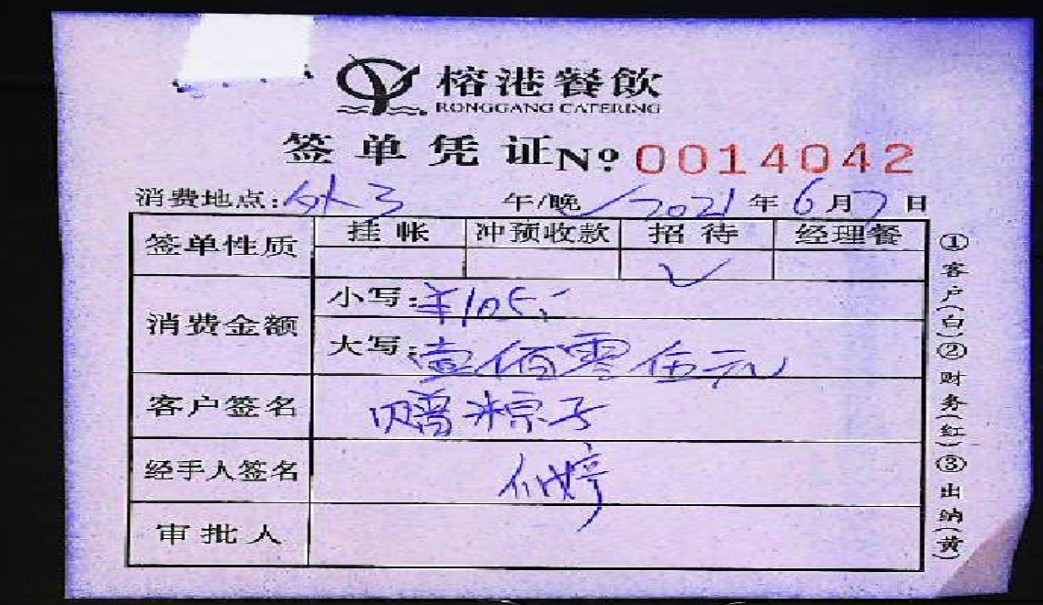 榕港餐飲
RONGGANG CATERING
签单凭证 Nº 0014042
消费地点:外3 午/晚 2021年6月7日
签单性质 挂帐 冲预收款 招待 经理餐
✓
消费金额 小写:¥105.-
大写:壹佰零伍元
客户签名 赠粽子
经手人签名 婷
审批人
①客户(白)②财务(红)③出纳(黄)